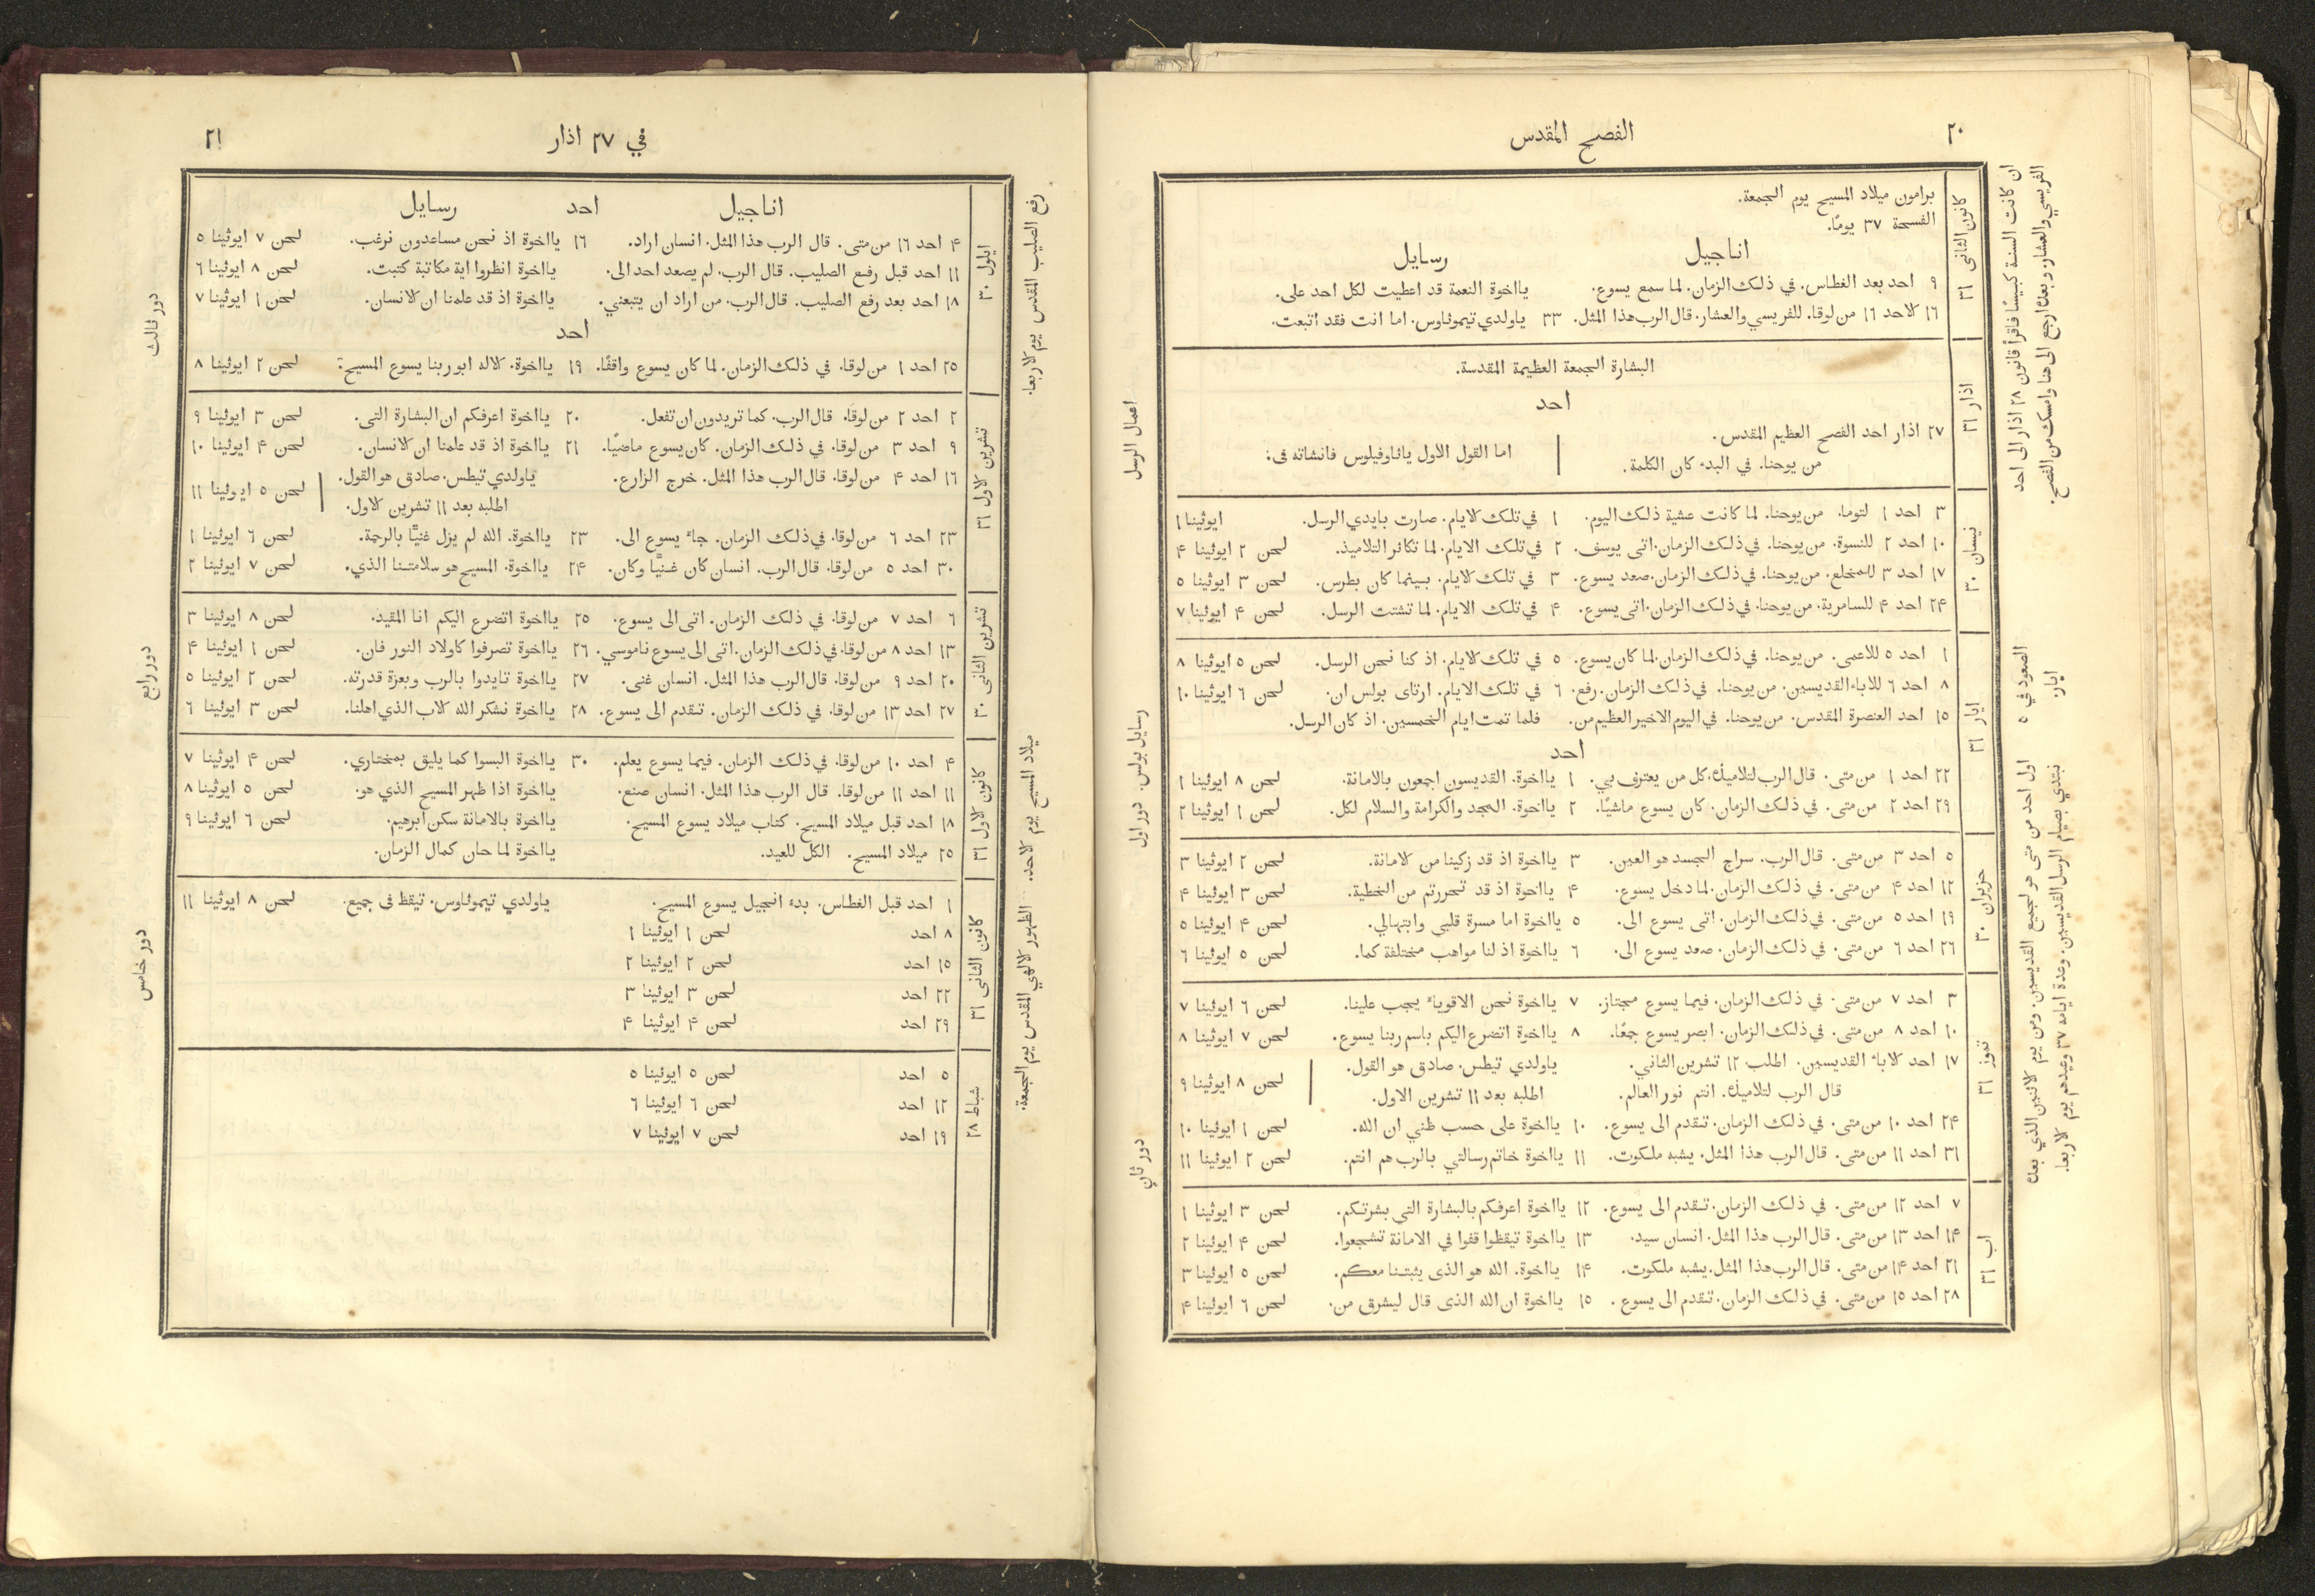 ٢٠
الفصح المقدس
ان كانت السنة كبيسًا فاقرأ قانون ٢٨ اذار الى احد
الفريسي والعشار. وبعدئ ارجع الى هنا وامسك من الفصح.
كانون الثانى ٣١
برامون ميلاد المسيح يوم الجمعة.
الفسحة ٣٧ يومًا.
اناجيل رسايل
٩ احد بعد الغطاس. في ذلك الزمان. لما سمع يسوع. يااخوة النعمة قد اعطيت لكل احد على.
١٦ الاحد ١٦ من لوقا. للفريسي والعشار. قال الرب هذا المثل. ٣٣ ياولدي تيموثاوس. اما انت فقد اتبعت.
اذار ٣١
البشارة الجمعة العظيمة المقدسة.
احد
٢٧ اذار احد الفصح العظيم المقدس.
من يوحنا. في البدء كان الكلمة. اما القول الاول ياثاوفيلوس فانشاته فى:
اعمال الرسل
نيسان ٣٠
٣ احد ١ لتوما. من يوحنا. لما كانت عشية ذلك اليوم. ١ في تلك الايام. صارت بايدي الرسل. ايوثينا ١
١٠ احد ٢ للنسوة. من يوحنا. في ذلك الزمان. اتى يوسف. ٢ في تلك الايام. لما تكاثر التلاميذ. لحن ٢ ايوثينا ۴
١٧ احد ٣ للمخلع. من يوحنا. في ذلك الزمان. صعد يسوع. ٣ في تلك الايام. بينما كان بطرس. لحن ٣ ايوثينا ٥
٢۴ احد ۴ للسامرية. من يوحنا. في ذلك الزمان. اتى يسوع. ۴ في تلك الايام. لما تشتت الرسل. لحن ۴ ايوثينا ٧
الصعود في ٥
ايار.
ايار ٣١
١ احد ٥ للاعمى. من يوحنا. في ذلك الزمان. لما كان يسوع. ٥ في تلك الايام. اذ كنا نحن الرسل. لحن ٥ ايوثينا ٨
٨ احد ٦ للاباء القديسين. من يوحنا. في ذلك الزمان. رفع. ٦ في تلك الايام. ارتاى بولس ان. لحن ٦ ايوثينا ١٠
١٥ احد العنصرة المقدس. من يوحنا. في اليوم الاخير العظيم من. فلما تمت ايام الخمسين. اذ كان الرسل.
احد
٢٢ احد ١ من متى. قال الرب لتلاميذه. كل من يعترف بي. ١ يااخوة. القديسون اجمعون بالامانة. لحن ٨ ايوثينا ١
٢٩ احد ٢ من متى. في ذلك الزمان. كان يسوع ماشيًا. ٢ يااخوة. المجد والكرامة والسلام لكل. لحن ١ ايوثينا ٢
رسايل بولس. دور اول
اول احد من متى هو لجميع القديسين. ومن يوم الاثنين الذي بعده
نبتدي بصيام الرسل القديسين. وعدة ايامه ٣٧ وعيدهم يوم الاربعا.
حزيران ٣٠
٥ احد ٣ من متى. قال الرب. سراج الجسد هو العين. ٣ يااخوة اذ قد زكينا من الامانة. لحن ٢ ايوثينا ٣
١٢ احد ۴ من متى. في ذلك الزمان. لما دخل يسوع. ۴ يااخوة اذ قد تحررتم من الخطية. لحن ٣ ايوثينا ۴
١٩ احد ٥ من متى. في ذلك الزمان. اتى يسوع الى. ٥ يااخوة اما مسرة قلبي وابتهالي. لحن ۴ ايوثينا ٥
٢٦ احد ٦ من متى. في ذلك الزمان. صعد يسوع الى. ٦ يااخوة اذ لنا مواهب مختلفة كما. لحن ٥ ايوثينا ٦
تموز ٣١
٣ احد ٧ من متى. في ذلك الزمان. فيما يسوع مجتاز. ٧ يااخوة نحن الاقوياء يجب علينا. لحن ٦ ايوثينا ٧
١٠ احد ٨ من متى. في ذلك الزمان. ابصر يسوع جمعًا. ٨ يااخوة اتضرع اليكم باسم ربنا يسوع. لحن ٧ ايوثينا ٨
١٧ احد الاباء القديسين. اطلب ١٢ تشرين الثاني. ياولدي تيطس. صادق هو القول. لحن ٨ ايوثينا ٩
قال الرب لتلاميذه. انتم نور العالم. اطلبه بعد ١١ تشرين الاول.
٢۴ احد ١٠ من متى. في ذلك الزمان. تقدم الى يسوع. ١٠ يااخوة على حسب ظني ان الله. لحن ١ ايوثينا ١٠
٣١ احد ١١ من متى. قال الرب هذا المثل. يشبه ملكوت. ١١ يااخوة خاتم رسالتي بالرب هم انتم. لحن ٢ ايوثينا ١١
دور ثاني
اب ٣١
٧ احد ١٢ من متى. في ذلك الزمان. تقدم الى يسوع. ١٢ يااخوة اعرفكم بالبشارة التي بشرتكم. لحن ٣ ايوثينا ١
١۴ احد ١٣ من متى. قال الرب هذا المثل. انسان سيد. ١٣ يااخوة تيقظوا قفوا في الامانة تشجعوا. لحن ۴ ايوثينا ٢
٢١ احد ١۴ من متى. قال الرب هذا المثل. يشبه ملكوت. ١۴ يااخوة. الله هو الذى يثبتنا معكم. لحن ٥ ايوثينا ٣
٢٨ احد ١٥ من متى. في ذلك الزمان. تقدم الى يسوع. ١٥ يااخوة ان الله الذى قال ليشرق من. لحن ٦ ايوثينا ۴
في ٢٧ اذار
٢١
رفع الصليب المقدس يوم الاربعا.
ايلول ٣٠
اناجيل احد رسايل
۴ احد ١٦ من متى. قال الرب هذا المثل. انسان اراد. ١٦ يااخوة اذ نحن مساعدون نرغب. لحن ٧ ايوثينا ٥
١١ احد قبل رفع الصليب. قال الرب. لم يصعد احد الى. يااخوة انظروا اية مكاتبة كتبت. لحن ٨ ايوثينا ٦
١٨ احد بعد رفع الصليب. قال الرب. من اراد ان يتبعني. يااخوة اذ قد علمنا ان الانسان. لحن ١ ايوثينا ٧
احد
٢٥ احد ١ من لوقا. في ذلك الزمان. لما كان يسوع واقفًا. ١٩ يااخوة. الاله ابو ربنا يسوع المسيح: لحن ٢ ايوثينا ٨
دور ثالث
تشرين الاول ٣١
٢ احد ٢ من لوقا. قال الرب. كما تريدون ان تفعل. ٢٠ يااخوة اعرفكم ان البشارة التى. لحن ٣ ايوثينا ٩
٩ احد ٣ من لوقا. في ذلك الزمان. كان يسوع ماضيًا. ٢١ يااخوة اذ قد علمنا ان الانسان. لحن ۴ ايوثينا ١٠
١٦ احد ۴ من لوقا. قال الرب هذا المثل. خرج الزارع. ياولدي تيطس. صادق هو القول. لحن ٥ ايوثينا ١١
اطلبه بعد ١١ تشرين الاول.
٢٣ احد ٦ من لوقا. في ذلك الزمان. جاء يسوع الى. ٢٣ يااخوة. الله لم يزل غنيًّا بالرحمة. لحن ٦ ايوثينا ١
٣٠ احد ٥ من لوقا. قال الرب. انسان كان غنيًّا وكان. ٢۴ يااخوة. المسيح هو سلامتنا الذي. لحن ٧ ايوثينا ٢
تشرين الثانى ٣٠
٦ احد ٧ من لوقا. في ذلك الزمان. اتى الى يسوع. ٢٥ يااخوة اتضرع اليكم انا المقيد. لحن ٨ ايوثينا ٣
١٣ احد ٨ من لوقا. في ذلك الزمان. اتى الى يسوع ناموسي. ٢٦ يااخوة تصرفوا كاولاد النور فان. لحن ١ ايوثينا ۴
٢٠ احد ٩ من لوقا. قال الرب هذا المثل. انسان غنى. ٢٧ يااخوة تايدوا بالرب وبعزة قدرته. لحن ٢ ايوثينا ٥
٢٧ احد ١٣ من لوقا. في ذلك الزمان. تقدم الى يسوع. ٢٨ يااخوة نشكر الله الاب الذي اهلنا. لحن ٣ ايوثينا ٦
دور رابع
ميلاد المسيح يوم الاحد. الظهور الالهي المقدس يوم الجمعة.
كانون الاول ٣١
۴ احد ١٠ من لوقا. في ذلك الزمان. فيما يسوع يعلم. ٣٠ يااخوة البسوا كما يليق بمختاري. لحن ۴ ايوثينا ٧
١١ احد ١١ من لوقا. قال الرب هذا المثل. انسان صنع. يااخوة اذا ظهر المسيح الذي هو. لحن ٥ ايوثينا ٨
١٨ احد قبل ميلاد المسيح. كتاب ميلاد يسوع المسيح. يااخوة بالامانة سكن ابرهيم. لحن ٦ ايوثينا ٩
٢٥ ميلاد المسيح. الكل للعيد. يااخوة لما حان كمال الزمان.
كانون الثانى ٣١
١ احد قبل الغطاس. بدء انجيل يسوع المسيح. ياولدي تيموثاوس. تيقظ فى جميع. لحن ٨ ايوثينا ١١
٨ احد لحن ١ ايوثينا ١
١٥ احد لحن ٢ ايوثينا ٢
٢٢ احد لحن ٣ ايوثينا ٣
٢٩ احد لحن ۴ ايوثينا ۴
دور خامس
شباط ٢٨
٥ احد لحن ٥ ايوثينا ٥
١٢ احد لحن ٦ ايوثينا ٦
١٩ احد لحن ٧ ايوثينا ٧